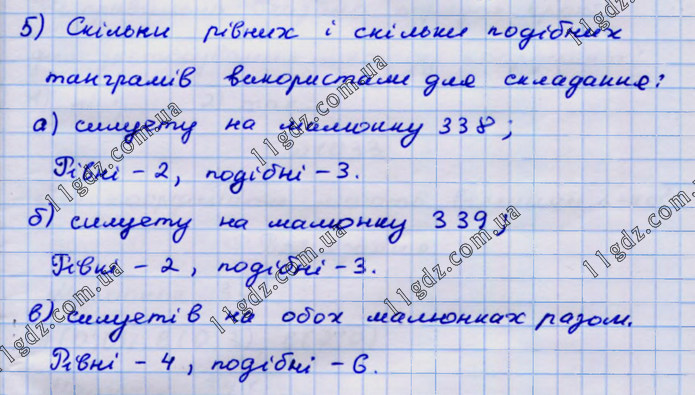 5) Скільки рівних і скільки подібних
танграмів використали для складання:
а) силуету на малюнку 338;
Рівні - 2, подібні - 3.
б) силуету на малюнку 339;
Рівні - 2, подібні - 3.
в) силуетів на обох малюнках разом.
Рівні - 4, подібні - 6.
11gdz.com.ua
11gdz.com.ua
11gdz.com.ua
11gdz.com.ua
11gdz.com.ua
11gdz.com.ua